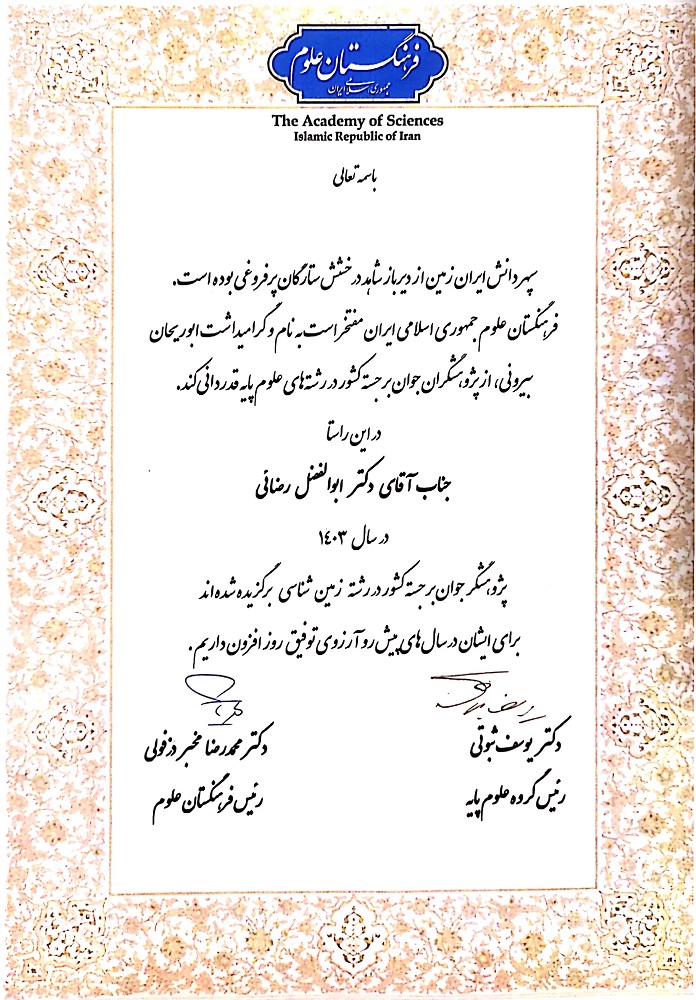 فرهنگستان علوم
جمهوری اسلامی ایران
The Academy of Sciences
Islamic Republic of Iran
باسمه تعالی
سپهر دانش ایران زمین از دیرباز شاهد درخشش ستارگان پرفروغی بوده است.
فرهنگستان علوم جمهوری اسلامی ایران مفتخر است به نام و گرامیداشت ابوریحان
بیرونی، از پژوهشگران جوان برجسته کشور در رشته‌های علوم پایه قدردانی کند.
در این راستا
جناب آقای دکتر ابوالفضل رضائی
در سال ۱۴۰۳
پژوهشگر جوان برجسته کشور در رشته زمین شناسی برگزیده شده‌اند
برای ایشان در سال های پیش رو آرزوی توفیق روز افزون داریم.
دکتر یوسف ثبوتی
دکتر محمدرضا مخبر دزفولی
رئیس گروه علوم پایه
رئیس فرهنگستان علوم